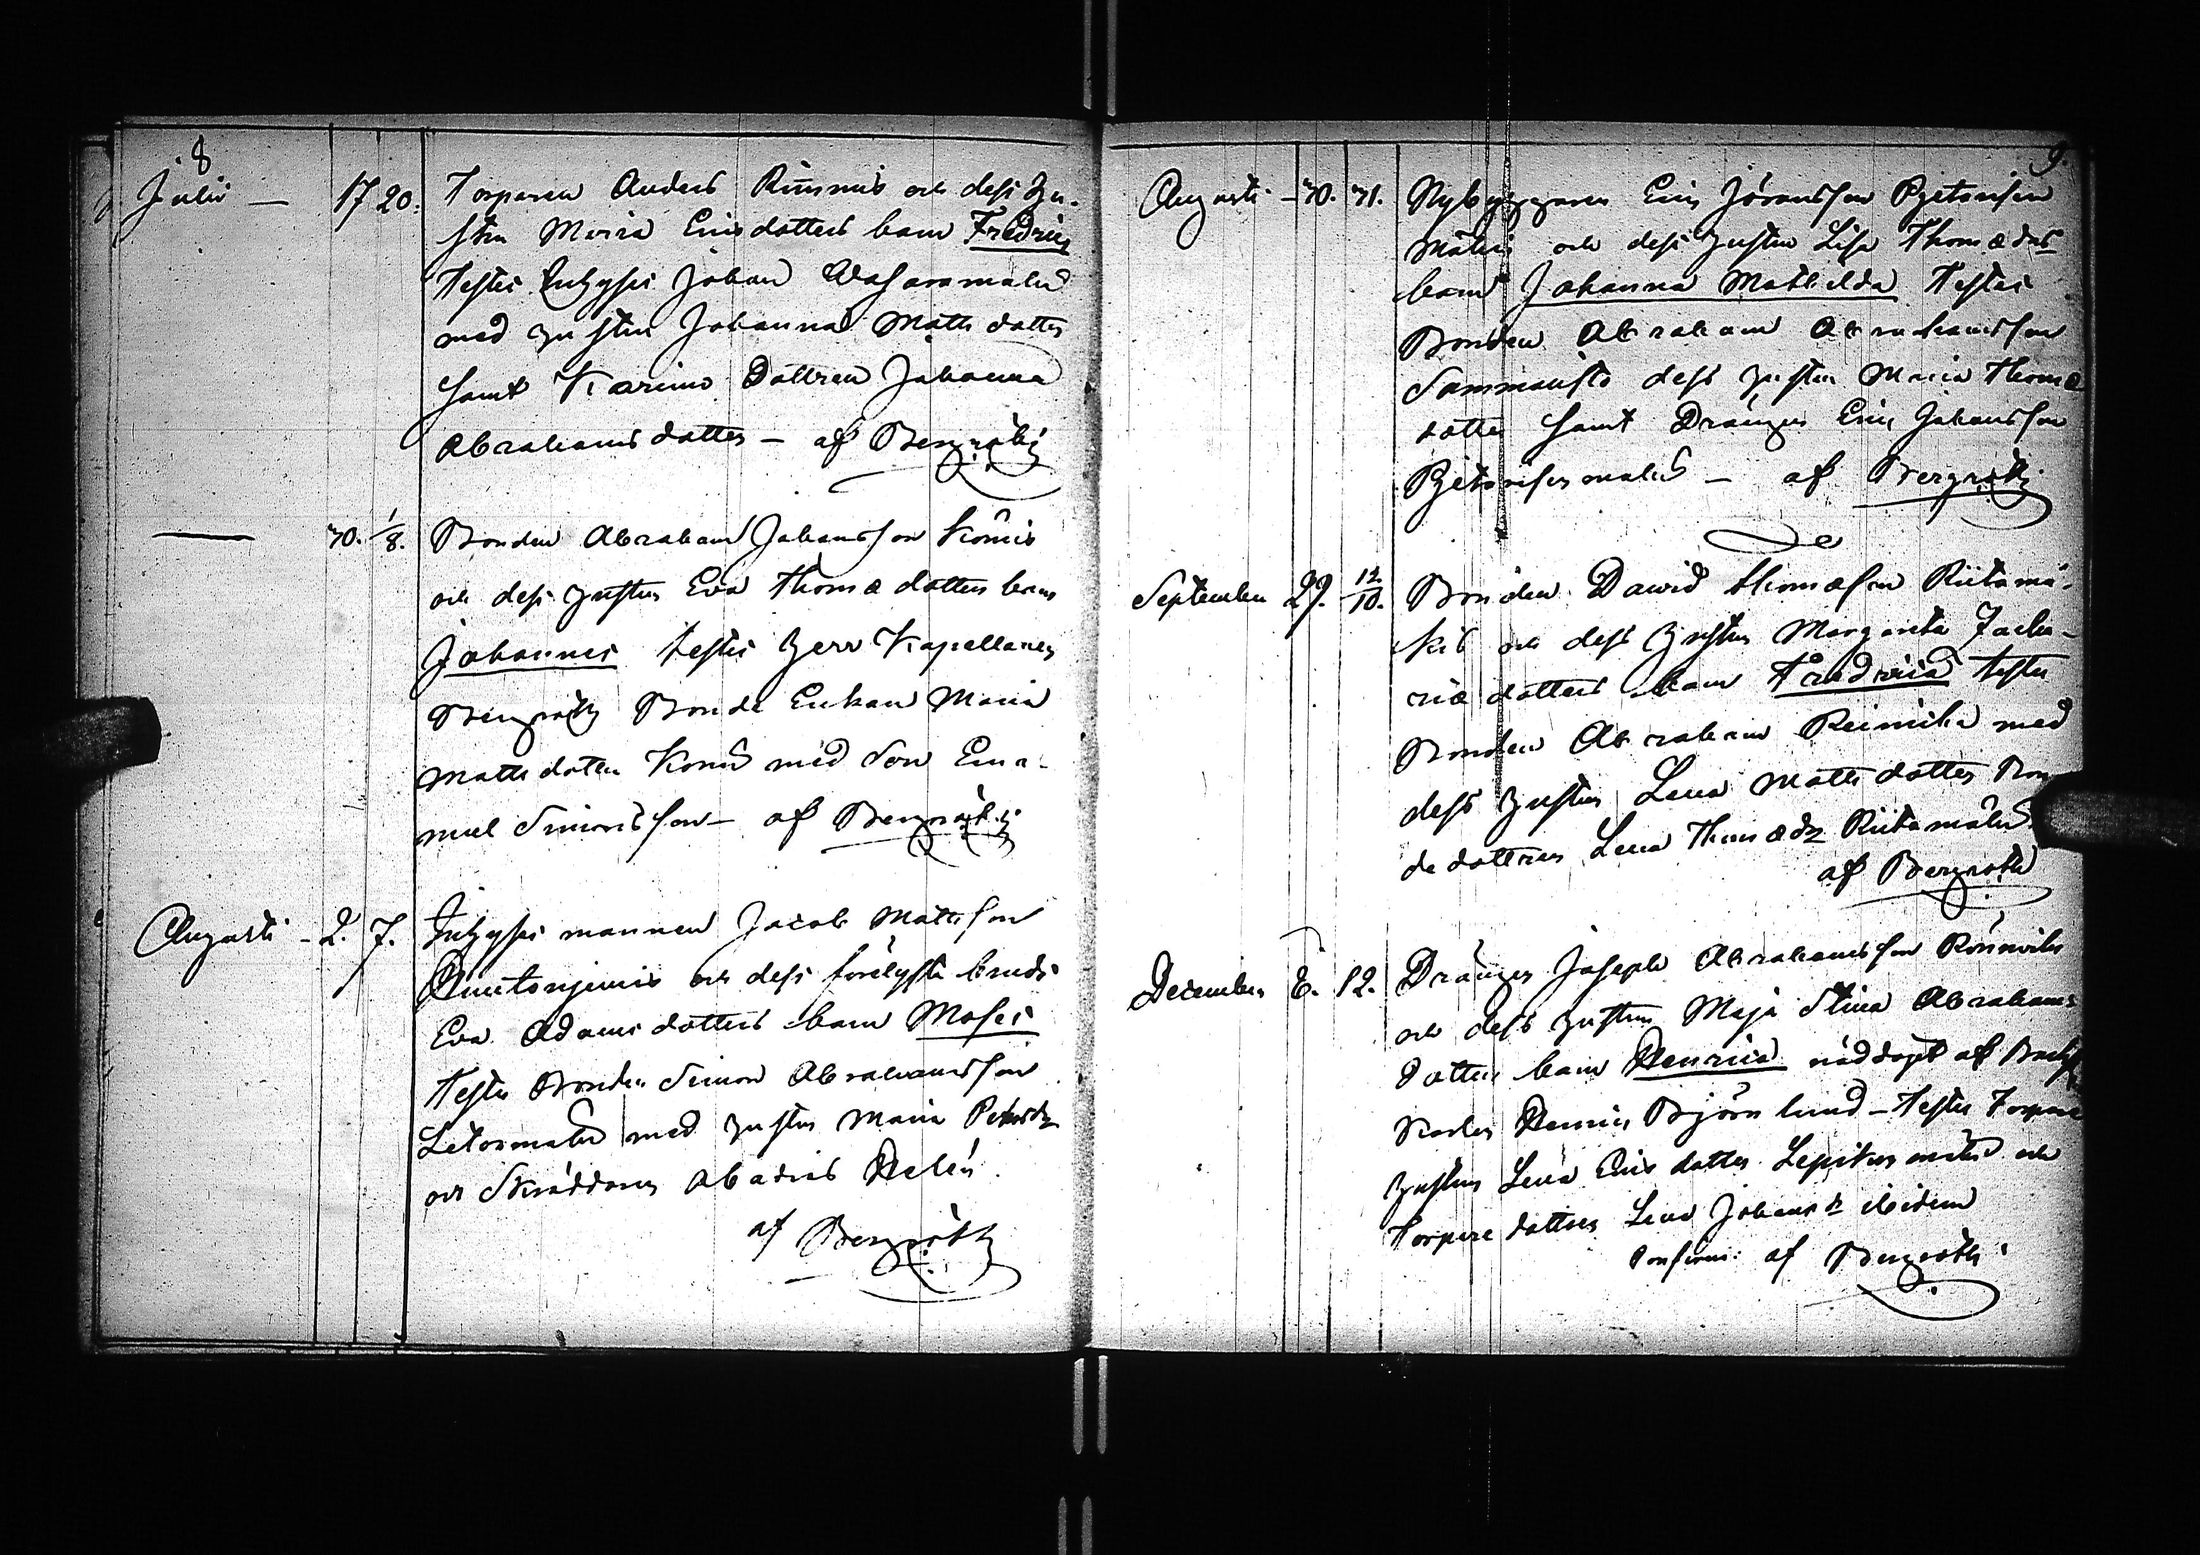 8
Julii — 17 20. Torparen Anders Rimmis och dess hu-
stru Maria Ericsdotters barn Fredric
Testes Inhyses Johan Wasaramaled
med hustru Johanna Mattsdotter
samt Dottren Johanna
Abrahamsdotter — af Bergroth
— 30. 1/8. Bonden Abraham Johansson Komis
och dess hustru Eva Thomædotters barn
Johannes testes Herr Kapellanen
Bergroth Bonde Enkan Maria
Mattsdotter med Son Ema-
nuel Simonsson — af Bergroth
Augusti — 2. 7. Inhyses mannen Jacob Mattsson
och dess förelyfte brud
Eva Adamsdotters barn Moses
Testes Bonden Simon Abrahamsson
med hustru Maria Petersdr
och Skräddaren
af Bergroth
9.
Augusti — 30. 31. Nybyggaren Eric Jöransson
och dess hustru Lisa Thomædrs
barn Johanna Mathilda Testes
Bonden Abraham Abrahamsson
Sammauste dess hustru Maria Thomæ
dotter samt Drängen Eric Johansson
— af Bergroth
September 29. 12/10. Bonden David Thomæson Riitamä-
kis och dess hustru Margareta Zacha-
riædotters barn Fredrica testes
Bonden Abraham Reinicka med
dess hustru Lena Mattsdotter Bon-
de dottren Lena Thomædr
af Bergroth
December 6. 12. Drängen Joseph Abrahamsson
och dess hustru Maja Stina Abrahams
dotters barn Henrica nöddöpt af
Henric Björnlund — Testes Torpare
hustrun Lena Ericsdotter och
Torpare dottren Lena Johansdr ibidem
Confirm: af Bergroth